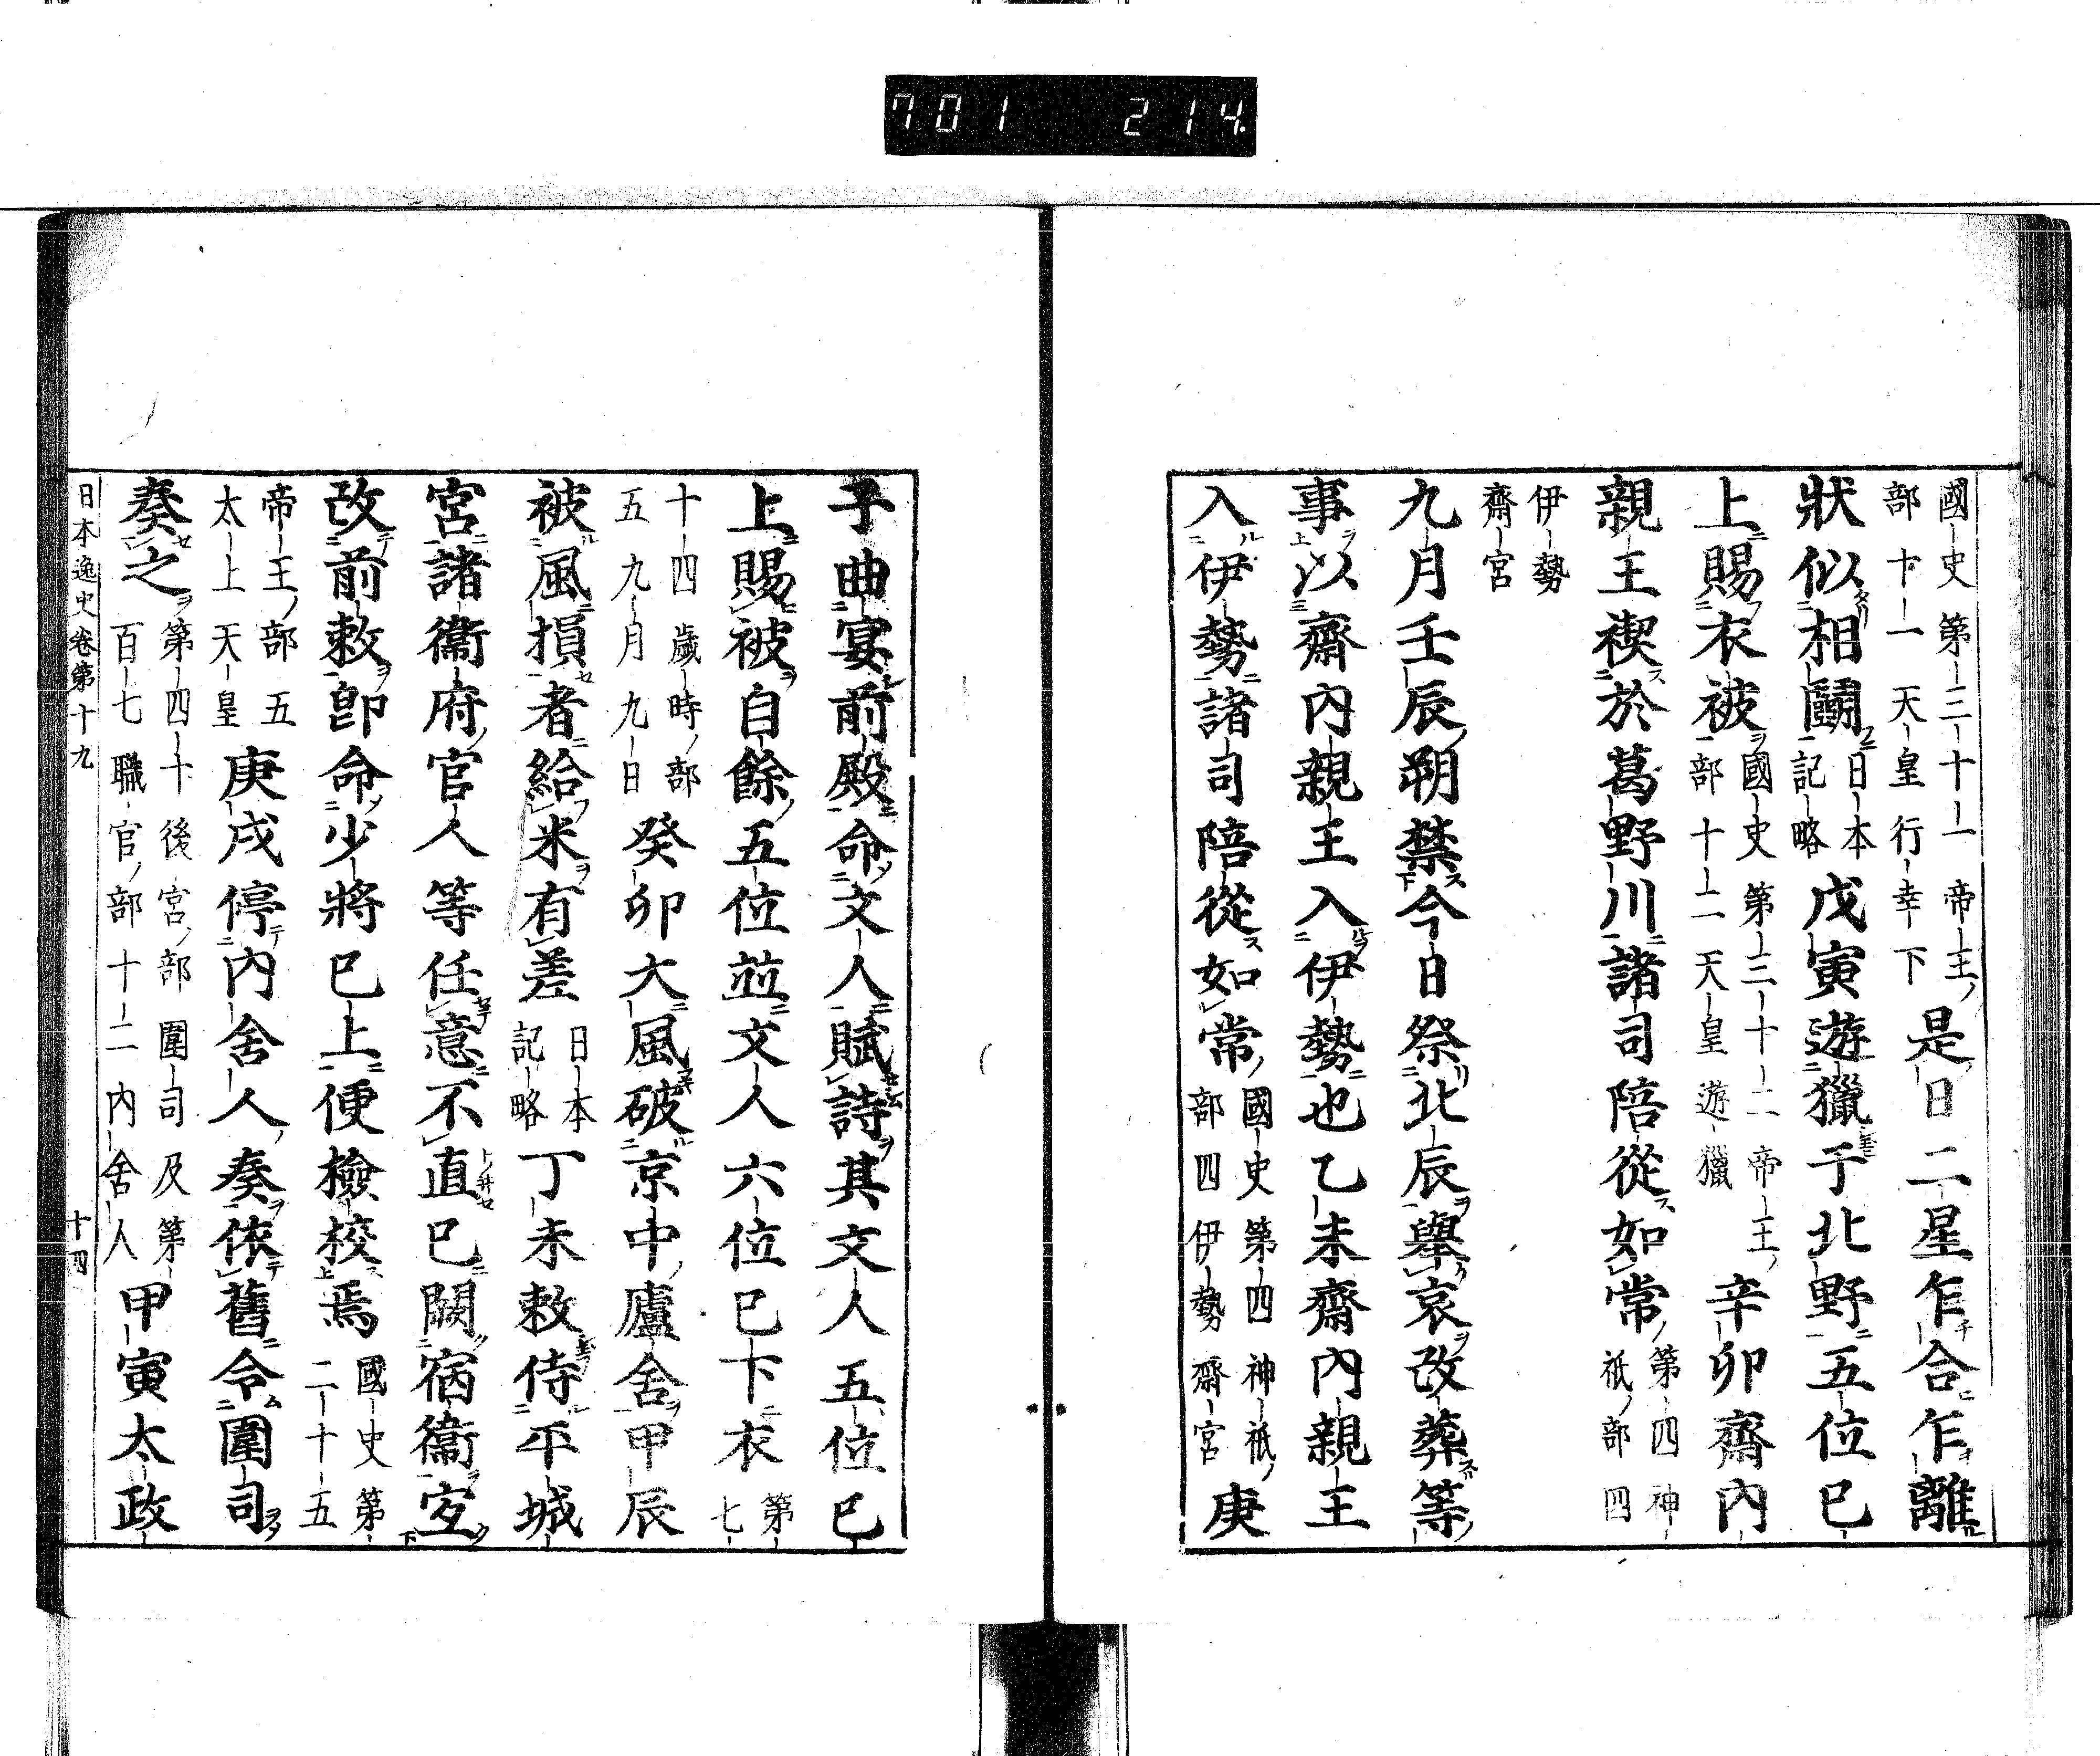 701 214
國史第三十一帝王
部十一天皇行幸下
是日二星乍合乍離
狀似相鬭
日本
記略
戊寅遊獵于北野五位已
上賜衣被
國史第三十二帝王
部十二天皇遊獵
辛卯齋内
親王禊於葛野川諸司陪從如常
第四神
祇部四
伊勢
齋宮
九月壬辰朔禁今日祭北辰舉哀改葬等
事以齋内親王入伊勢也乙未齋内親王
入伊勢諸司陪從如常
國史第四神祇
部四伊勢齋宮
庚
子曲宴前殿命文人賦詩其文人五位已
上賜被自餘五位並文人六位已下衣
第七
十四歲時部
五九月九日
癸卯大風破京中廬舍甲辰
被風損者給米有差
日本
記略
丁未敕侍平城
宮諸衞府官人等任意不直已闕宿衞宜
改前敕卽命少將已上便檢校焉
國史第
二十五
帝王部五
太上天皇
庚戌停内舍人奏依舊令闈司
奏之
第四十後宮部闈司及第
百七職官部十二内舍人
甲寅太政
日本逸史卷第十九
十四